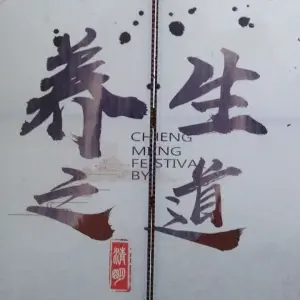 养生
CHIENG
MING
FEISTIVA
BY
之道
清明